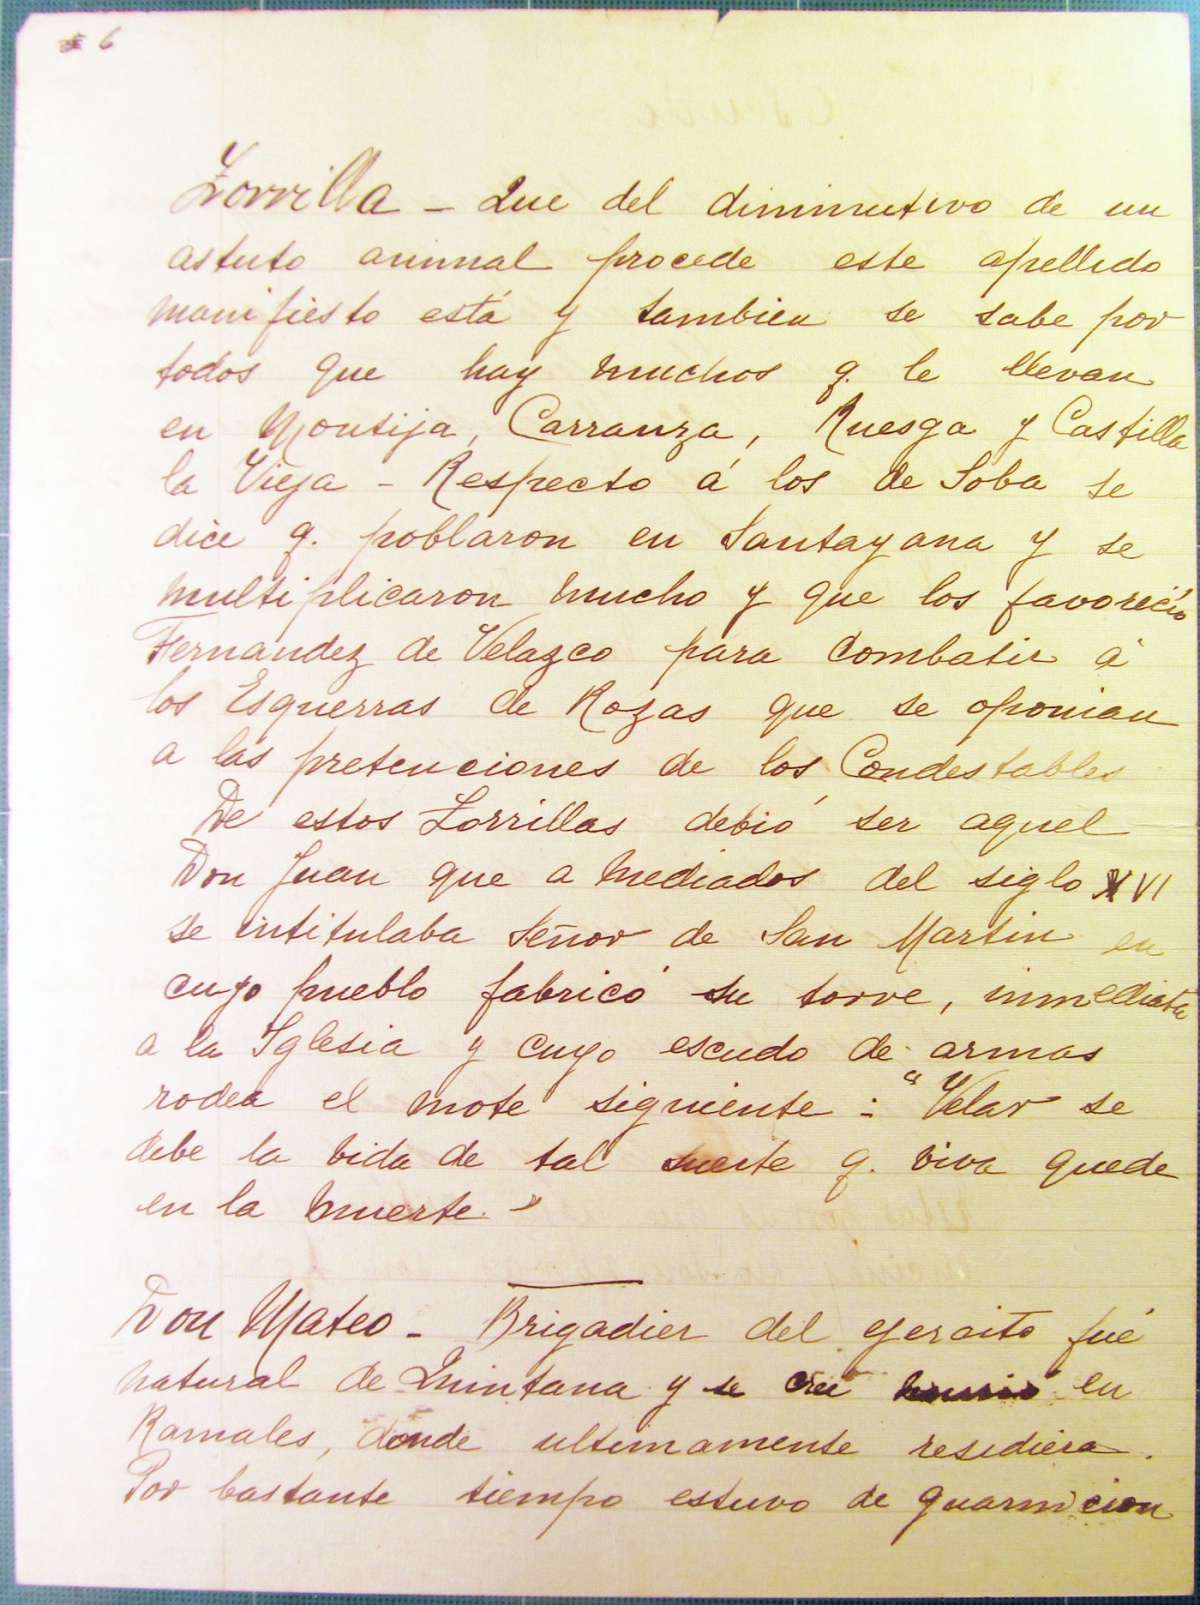 6
Zorrilla - Que del diminutivo de un
astuto animal procede este apellido
manifiesto está y tambien se sabe por
todos que hay muchos q. le llevan
en Montija, Carranza, Ruesga y Castilla
la Vieja - Respecto á los de Soba se
dice q. poblaron en Santayana y se
multiplicaron mucho y que los favoreció
Fernandez de Velazco para combatir á
los Esquerras de Rozas que se oponian
a las pretenciones de los Condestables
De estos Zorrillas debió ser aquel
Don Juan que a mediados del siglo XVI
se intitulaba Señor de San Martin en
cuyo pueblo fabricó su torre, inmediata
a la Iglesia y cuyo escudo de armas
rodea el mote siguiente: "Velar se
debe la bida de tal suerte q. viva quede
en la muerte."
Don Mateo - Brigadier del ejercito fué
natural de Quintana y se cree murió en
Ramales, donde ultimamente residiera.
Por bastante tiempo estuvo de guarnicion